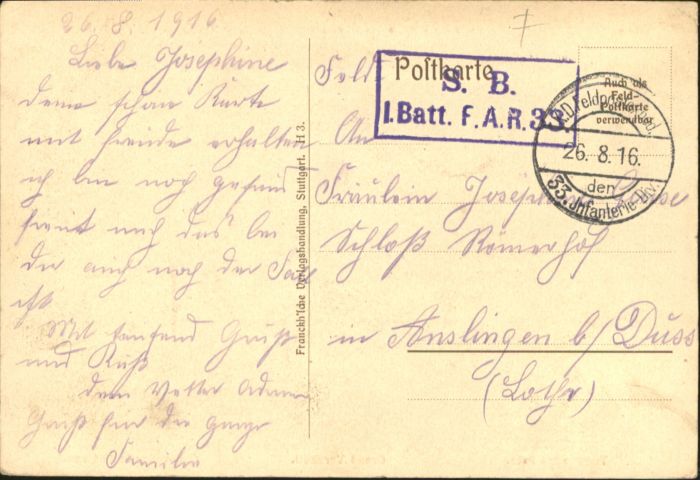 26. 8. 1916
Liebe Josephine
deine schöne Karte
mit Freude erhalten
ich bin noch gesund
freut mich das bei
dir auch noch der Fall
ist
Mit tausend Gruß
und Kuß
dein Vetter
Gruß für die ganze
Familie
Franckh'sche Verlagshandlung, Stuttgart. H 3.
Feld Postkarte
S. B.
I. Batt. F. A. R. 33.
Auch als
Feld-
Postkarte
verwendbar
26. 8. 16.
den
33. Infanterie-Div.
An
Fräulein
Schloß Römerhof
in Anslingen b/ Duss
(Lothr)